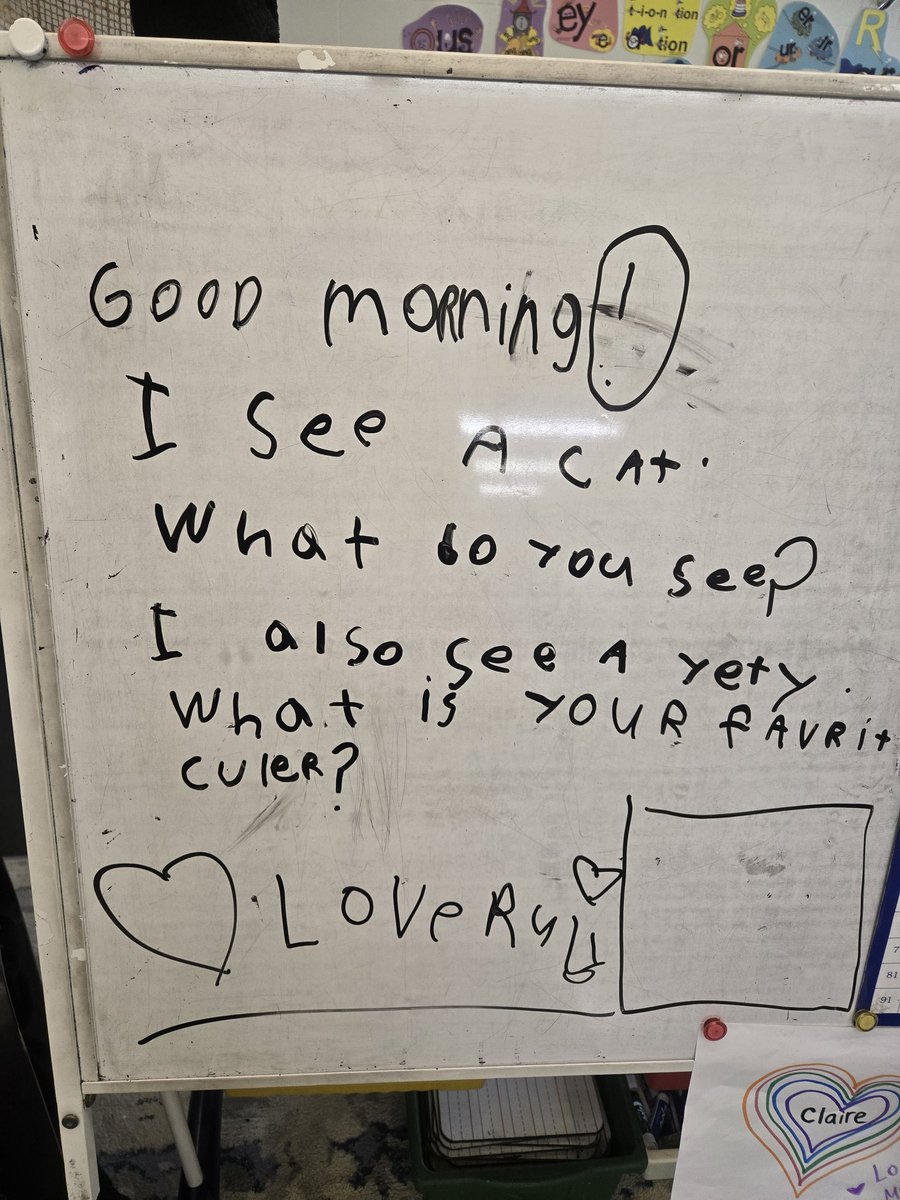 ous
ey
e
t-i-o-n tion
tion
or
er
ur
ir
R
GOOD morning!
I See A CAt.
What do you see?
I also see A yety.
What is YOUR fAVRit
CuleR?
LOVe Ru
7
81
91
Claire
Lo